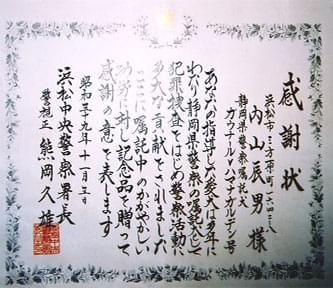 感謝状
浜松市三方原町一六四二ノ八
内山辰男様
静岡県警察嘱託犬
カウナール・ハマナガルテン号
あなたの指導した愛犬は多年に
わたり静岡県警察の嘱託犬として
犯罪捜査をはじめ警察活動に
多大な貢献をされました
ここに嘱託中のかがやかしい
功労に対し記念品を贈って
感謝の意を表します
昭和五十九年十一月三日
浜松中央警察署長
警視正 熊岡久雄